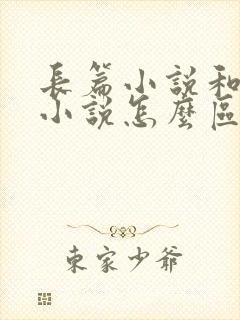 長篇小說和
小說怎麼區
東家少爺